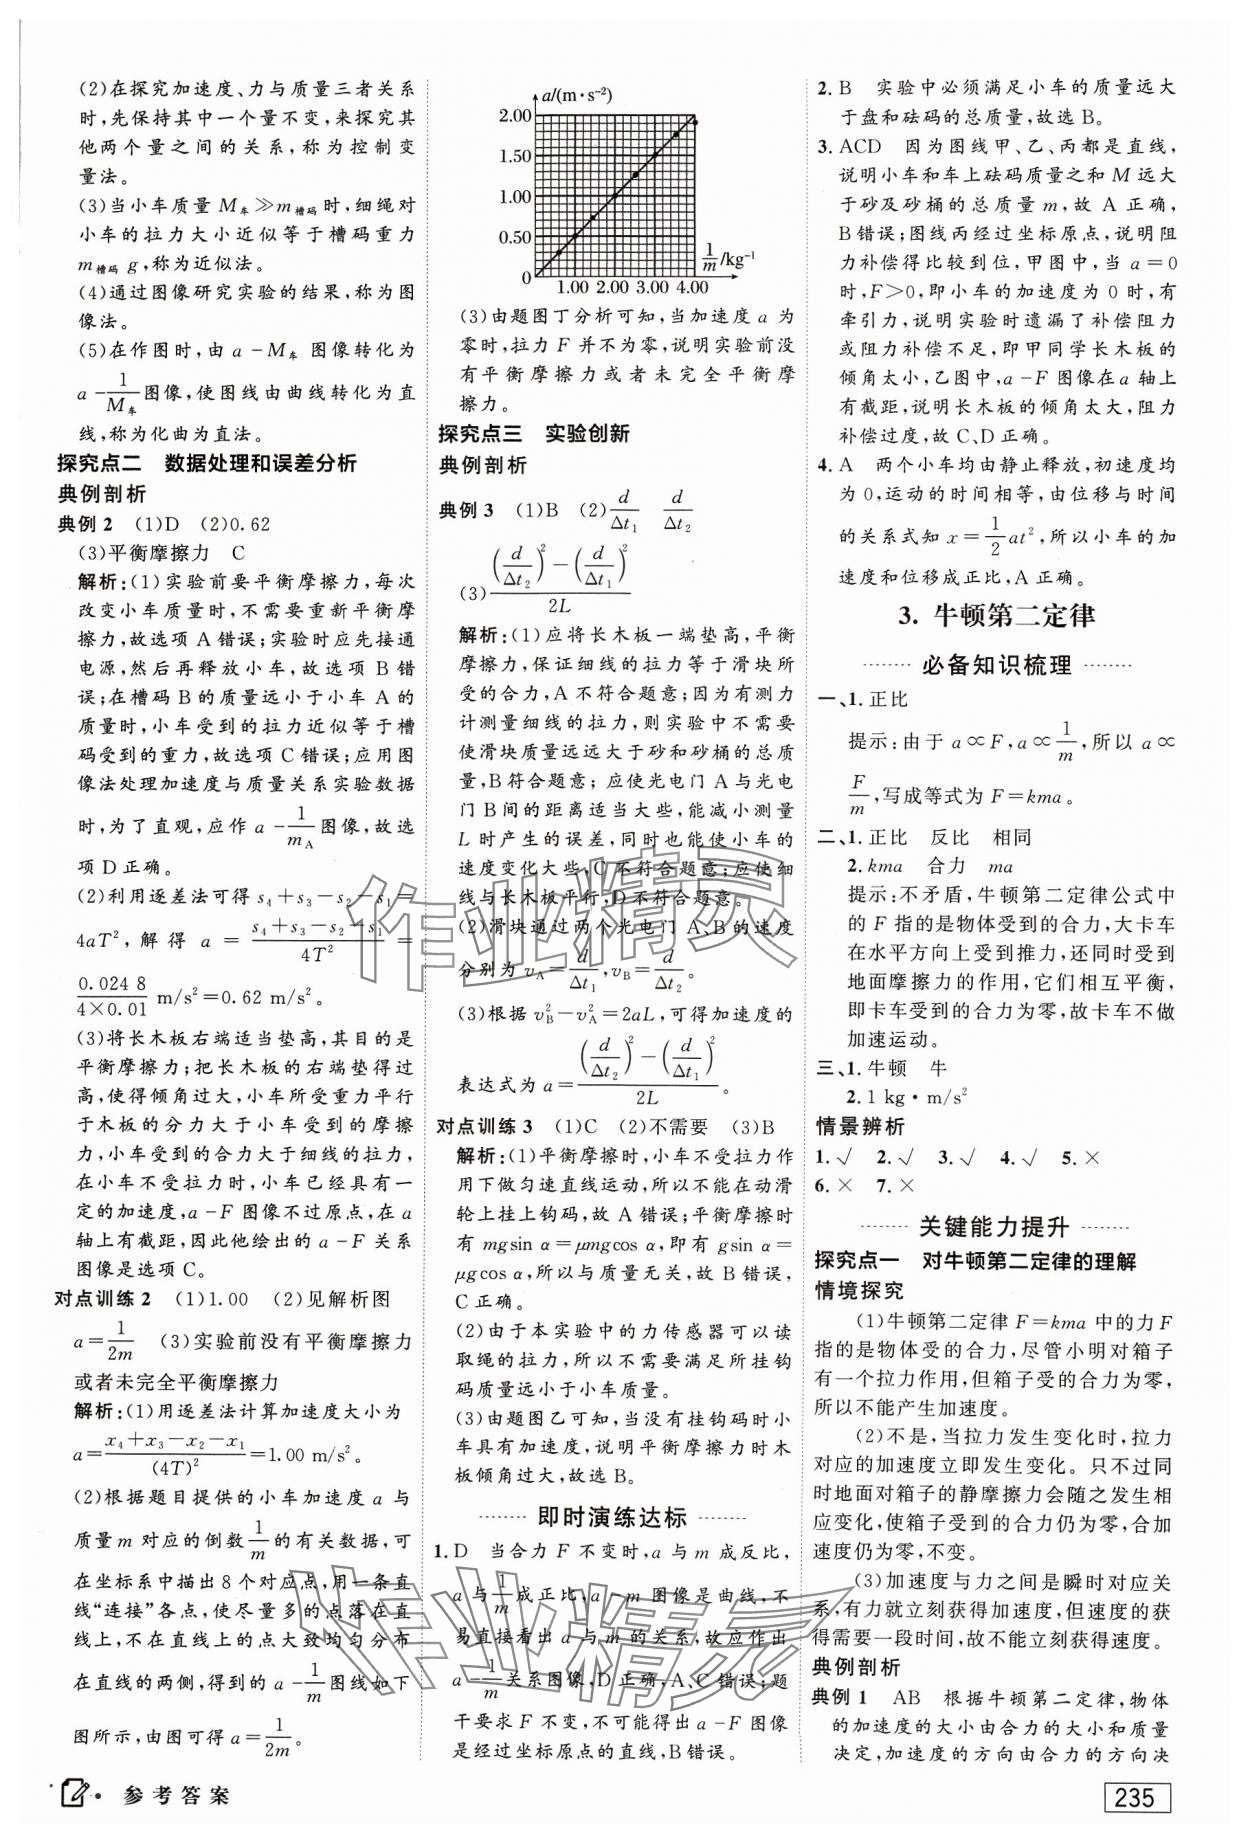 (2)在探究加速度、力与质量三者关系
时,先保持其中一个量不变,来探究其
他两个量之间的关系,称为控制变
量法。
(3)当小车质量 M车≫m槽码时,细绳对
小车的拉力大小近似等于槽码重力
m槽码 g,称为近似法。
(4)通过图像研究实验的结果,称为图
像法。
(5)在作图时,由 a－M车 图像转化为
a－1/M车图像,使图线由曲线转化为直
线,称为化曲为直法。
探究点二 数据处理和误差分析
典例剖析
典例 2 (1)D (2)0.62
(3)平衡摩擦力 C
解析:(1)实验前要平衡摩擦力,每次
改变小车质量时,不需要重新平衡摩
擦力,故选项 A 错误;实验时应先接通
电源,然后再释放小车,故选项 B 错
误;在槽码 B 的质量远小于小车 A 的
质量时,小车受到的拉力近似等于槽
码受到的重力,故选项 C 错误;应用图
像法处理加速度与质量关系实验数据
时,为了直观,应作 a－1/mA图像,故选
项 D 正确。
(2)利用逐差法可得 s4＋s3－s2－s1＝
4aT²,解得 a＝(s4＋s3－s2－s1)/4T²＝
0.024 8/(4×0.01) m/s²＝0.62 m/s²。
(3)将长木板右端适当垫高,其目的是
平衡摩擦力;把长木板的右端垫得过
高,使得倾角过大,小车所受重力平行
于木板的分力大于小车受到的摩擦
力,小车受到的合力大于细线的拉力,
在小车不受拉力时,小车已经具有一
定的加速度,a－F 图像不过原点,在 a
轴上有截距,因此他绘出的 a－F 关系
图像是选项 C。
对点训练 2 (1)1.00 (2)见解析图
a＝1/2m (3)实验前没有平衡摩擦力
或者未完全平衡摩擦力
解析:(1)用逐差法计算加速度大小为
a＝(x4＋x3－x2－x1)/(4T)²＝1.00 m/s²。
(2)根据题目提供的小车加速度 a 与
质量 m 对应的倒数1/m的有关数据,可
在坐标系中描出 8 个对应点,用一条直
线“连接”各点,使尽量多的点落在直
线上,不在直线上的点大致均匀分布
在直线的两侧,得到的 a－1/m图线如下
图所示,由图可得 a＝1/2m。
a/(m·s⁻²)
2.00
1.50
1.00
0.50
0
1.00 2.00 3.00 4.00
1/m/kg⁻¹
(3)由题图丁分析可知,当加速度 a 为
零时,拉力 F 并不为零,说明实验前没
有平衡摩擦力或者未完全平衡摩
擦力。
探究点三 实验创新
典例剖析
典例 3 (1)B (2)d/Δt1 d/Δt2
(3)((d/Δt2)²－(d/Δt1)²)/2L
解析:(1)应将长木板一端垫高,平衡
摩擦力,保证细线的拉力等于滑块所
受的合力,A 不符合题意;因为有测力
计测量细线的拉力,则实验中不需要
使滑块质量远远大于砂和砂桶的总质
量,B 符合题意;应使光电门 A 与光电
门 B 间的距离适当大些,能减小测量
L 时产生的误差,同时也能使小车的
速度变化大些,C 不符合题意;应使细
线与长木板平行,D 不符合题意。
(2)滑块通过两个光电门 A、B 的速度
分别为 vA＝d/Δt1,vB＝d/Δt2。
(3)根据 vB²－vA²＝2aL,可得加速度的
表达式为 a＝((d/Δt2)²－(d/Δt1)²)/2L。
对点训练 3 (1)C (2)不需要 (3)B
解析:(1)平衡摩擦时,小车不受拉力作
用下做匀速直线运动,所以不能在动滑
轮上挂上钩码,故 A 错误;平衡摩擦时
有 mgsin α＝μmgcos α,即有 gsin α＝
μgcos α,所以与质量无关,故 B 错误,
C 正确。
(2)由于本实验中的力传感器可以读
取绳的拉力,所以不需要满足所挂钩
码质量远小于小车质量。
(3)由题图乙可知,当没有挂钩码时小
车具有加速度,说明平衡摩擦力时木
板倾角过大,故选 B。
即时演练达标
1. D 当合力 F 不变时,a 与 m 成反比,
a 与1/m成正比,a－m 图像是曲线,不
易直接看出 a 与 m 的关系,故应作出
a－1/m关系图像,D 正确,A、C 错误;题
干要求 F 不变,不可能得出 a－F 图像
是经过坐标原点的直线,B 错误。
2. B 实验中必须满足小车的质量远大
于盘和砝码的总质量,故选 B。
3. ACD 因为图线甲、乙、丙都是直线,
说明小车和车上砝码质量之和 M 远大
于砂及砂桶的总质量 m,故 A 正确,
B 错误;图线丙经过坐标原点,说明阻
力补偿得比较到位,甲图中,当 a＝0
时,F＞0,即小车的加速度为 0 时,有
牵引力,说明实验时遗漏了补偿阻力
或阻力补偿不足,即甲同学长木板的
倾角太小,乙图中,a－F 图像在 a 轴上
有截距,说明长木板的倾角太大,阻力
补偿过度,故 C、D 正确。
4. A 两个小车均由静止释放,初速度均
为 0,运动的时间相等,由位移与时间
的关系式知 x＝1/2at²,所以小车的加
速度和位移成正比,A 正确。
3. 牛顿第二定律
必备知识梳理
一、1. 正比
提示:由于 a∝F,a∝1/m,所以 a∝
F/m,写成等式为 F＝kma。
二、1. 正比 反比 相同
2. kma 合力 ma
提示:不矛盾,牛顿第二定律公式中
的 F 指的是物体受到的合力,大卡车
在水平方向上受到推力,还同时受到
地面摩擦力的作用,它们相互平衡,
即卡车受到的合力为零,故卡车不做
加速运动。
三、1. 牛顿 牛
2. 1 kg·m/s²
情景辨析
1. √ 2. √ 3. √ 4. √ 5. ×
6. × 7. ×
关键能力提升
探究点一 对牛顿第二定律的理解
情境探究
(1)牛顿第二定律 F＝kma 中的力 F
指的是物体受的合力,尽管小明对箱子
有一个拉力作用,但箱子受的合力为零,
所以不能产生加速度。
(2)不是,当拉力发生变化时,拉力
对应的加速度立即发生变化。只不过同
时地面对箱子的静摩擦力会随之发生相
应变化,使箱子受到的合力仍为零,合加
速度仍为零,不变。
(3)加速度与力之间是瞬时对应关
系,有力就立刻获得加速度,但速度的获
得需要一段时间,故不能立刻获得速度。
典例剖析
典例 1 AB 根据牛顿第二定律,物体
的加速度的大小由合力的大小和质量
决定,加速度的方向由合力的方向决
作业精灵
作业精灵
参考答案
235